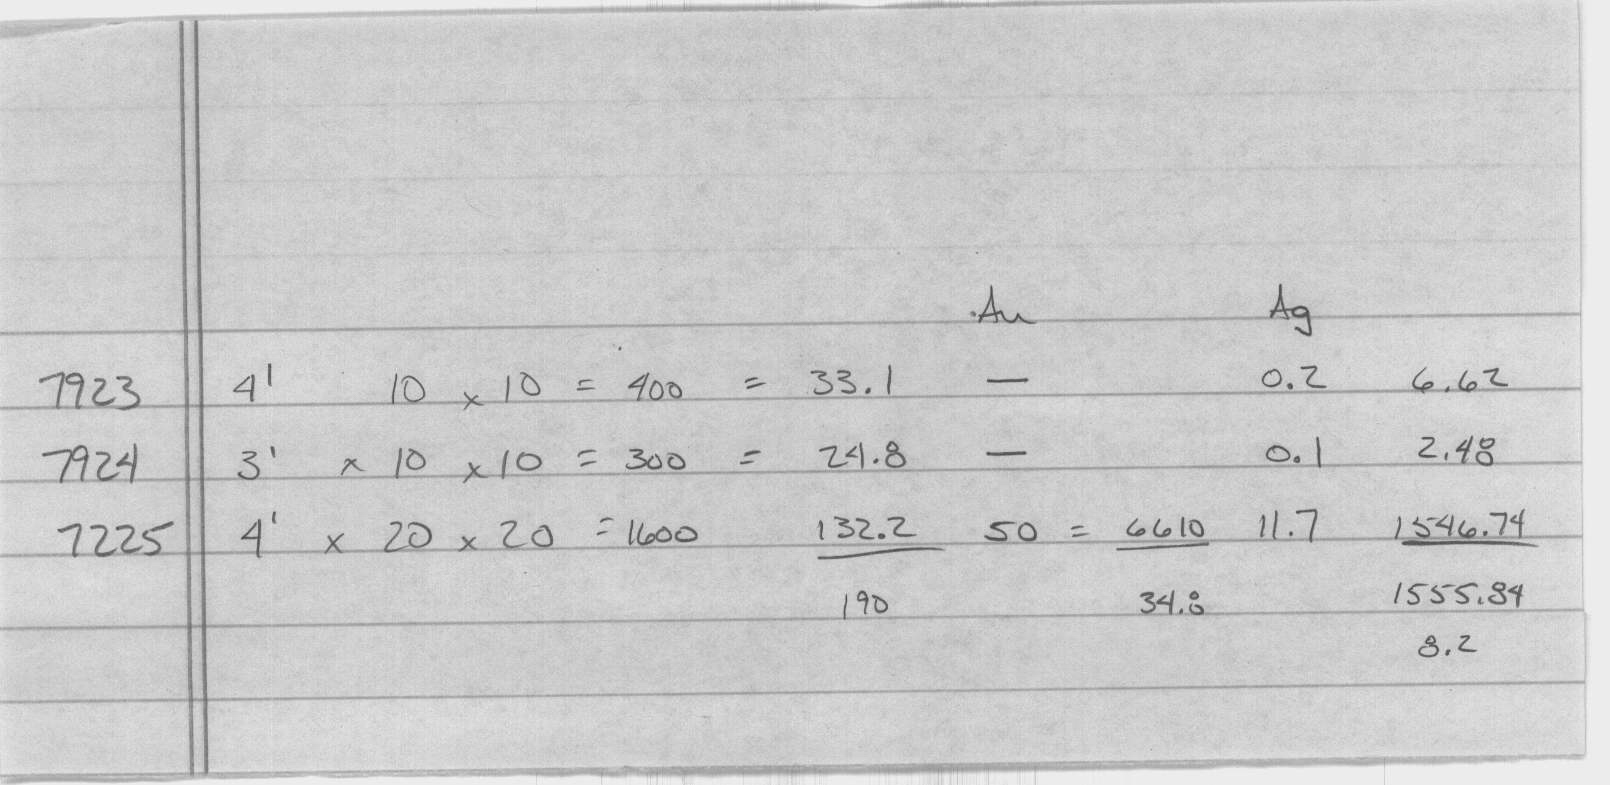 Au Ag
7923 4' 10 x 10 = 400 = 33.1 — 0.2 6.62
7924 3' x 10 x 10 = 300 = 24.8 — 0.1 2.48
7225 4' x 20 x 20 = 1600 132.2 50 = 6610 11.7 1546.74
190 34.8 1555.84
8.2